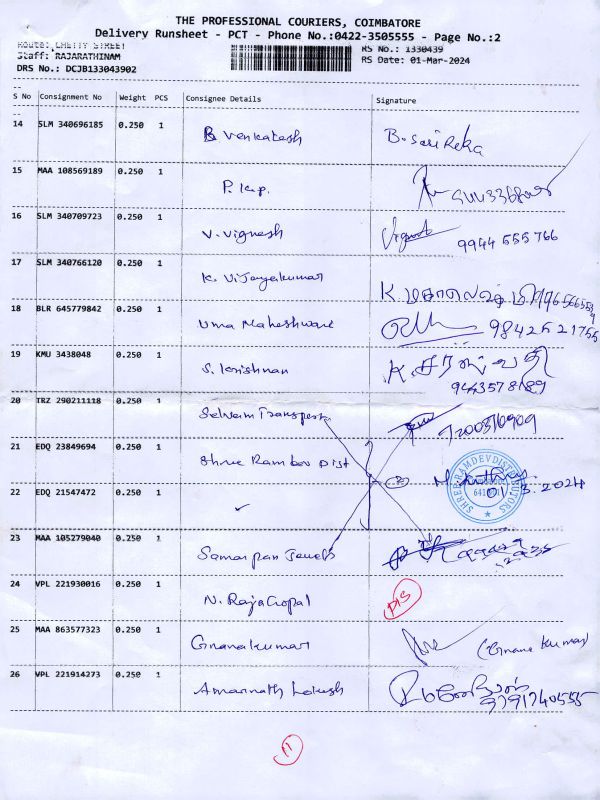 THE PROFESSIONAL COURIERS, COIMBATORE
Delivery Runsheet - PCT - Phone No.:0422-3505555 - Page No.:2
Route: CHETTY STREET
Staff: RAJARATHINAM
DRS No.: DCJB133043902
RS No.: 1330439
RS Date: 01-Mar-2024
S No Consignment No Weight PCS Consignee Details Signature
14 SLM 340696185 0.250 1 B Venkatesh B. Sasi Reka
15 MAA 108569189 0.250 1 P. K.P.
16 SLM 340709723 0.250 1 V. Vignesh Vignesh 9944 555 766
17 SLM 340766120 0.250 1 K. Vijayakumar K.
18 BLR 645779842 0.250 1 Uma Maheshwari
19 KMU 3438048 0.250 1 S. Krishnan K. சரஸ்வதி
9443578189
20 TRZ 290211118 0.250 1 Selvam Transport
21 EDQ 23849694 0.250 1 Shree Ramdev Dist
SHREE RAMDEV DISTRIBUTORS
22 EDQ 21547472 0.250 1 ✓ 3.2024
23 MAA 105279040 0.250 1 Samarpan Jewels
24 VPL 221930016 0.250 1 N. RajaGopal DIS
25 MAA 863577323 0.250 1 Gnanakumar (Gnana Kumar)
26 VPL 221914273 0.250 1 Amarnath Lokesh 9791740555
11